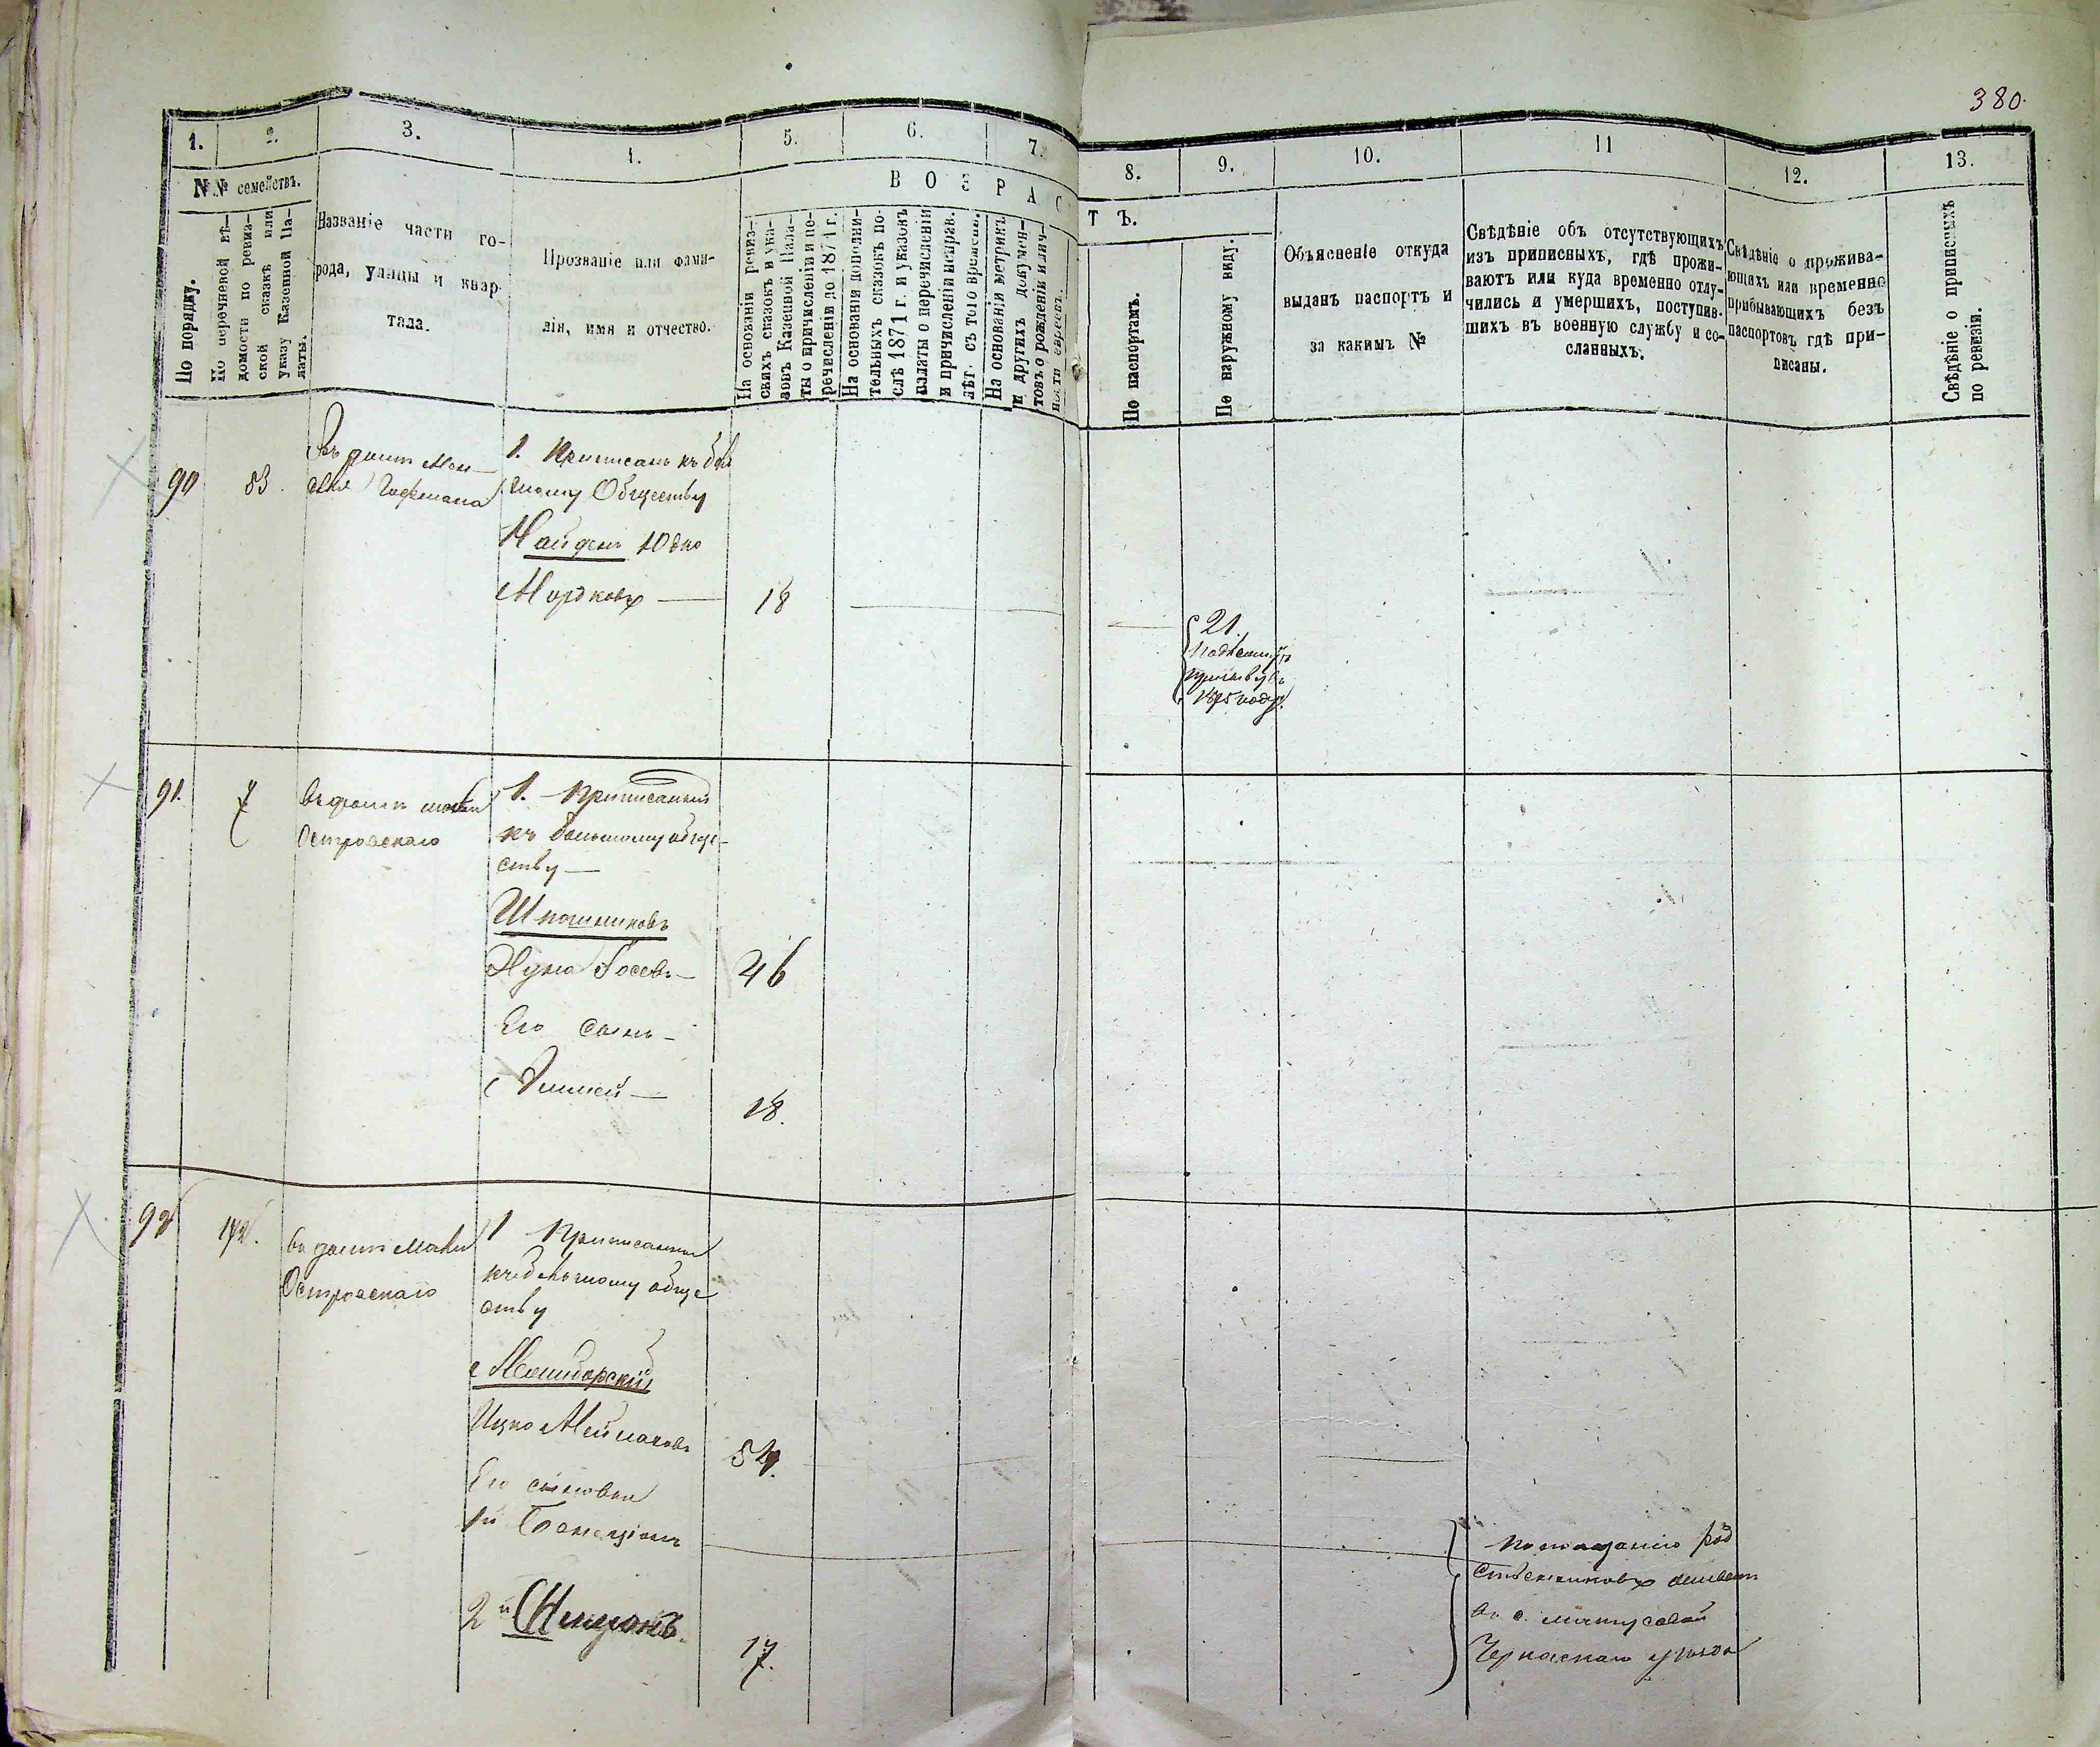 380.
1.
2.
3.
4.
5.
6.
7.
8.
9.
10.
11
12.
13.
№№ семействъ.
По порядку.
По перечневой вѣ-
домости по ревиз-
ской сказкѣ или
указу Казенной Па-
латы.
Названіе части го-
рода, улицы и квар-
тала.
Прозваніе или фами-
лія, имя и отчество.
ВОЗРАС
ТЪ.
На основаніи ревиз-
скихъ сказокъ и ука-
зовъ Казенной Пала-
ты о причисленіи и пе-
речисленіи до 1871 г.
На основаніи дополни-
тельныхъ сказокъ по-
слѣ 1871 г. и указовъ
палаты о перечисленіи
и причисленіи исправ.
лѣт. съ того времени.
На основаніи метрикъ
и другихъ докумен-
товъ о рожденіи и лич-
ности евреевъ.
По паспортамъ.
По наружному виду.
Объясненіе откуда
выданъ паспортъ и
за какимъ №
Свѣдѣніе объ отсутствующихъ
изъ приписныхъ, гдѣ прожи-
ваютъ или куда временно отлу-
чились и умершихъ, поступив-
шихъ въ военную службу и со-
сланныхъ.
Свѣдѣніе о прожива-
ющихъ или временно
прибывающихъ безъ
паспортовъ гдѣ при-
писаны.
Свѣдѣніе о приписныхъ
по ревизіи.
90
83.
Въ домѣ
Гофмана
1. Приписанъ къ
Обществу
Найденъ Юдко
Мордковъ —
18
21.
призыву въ
1875 году.
91.
7
въ домѣ
Островскаго
1. Приписанный
къ большому обще-
ству —
Шпошниковъ
Іосевъ —
46
Его сынъ —
18.
92
142.
въ домѣ
Островскаго
1 Приписанный
къ большому обще
ству
Ицко
54.
Его сыновья
1й Бенціонъ
2й Шимонъ.
17.
по показанію род
ственниковъ живетъ
въ с. Матусовой
Черкаскаго уѣзда